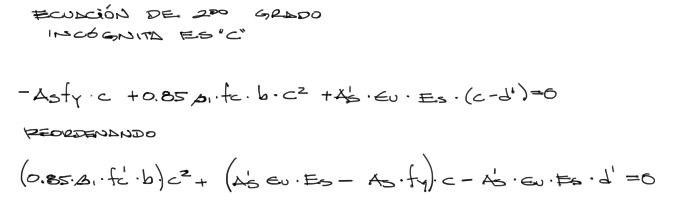 ECUACIÓN DE 2DO GRADO
INCÓGNITA ES "C"
-Asfy · c + 0.85 β₁ · fc · b · c² + A's · εu · Es · (c-d') = 0
REORDENANDO
(0.85 · β₁ · fc' · b) c² + (A's εu · Es - As · fy) · c - A's · εu · Es · d' = 0